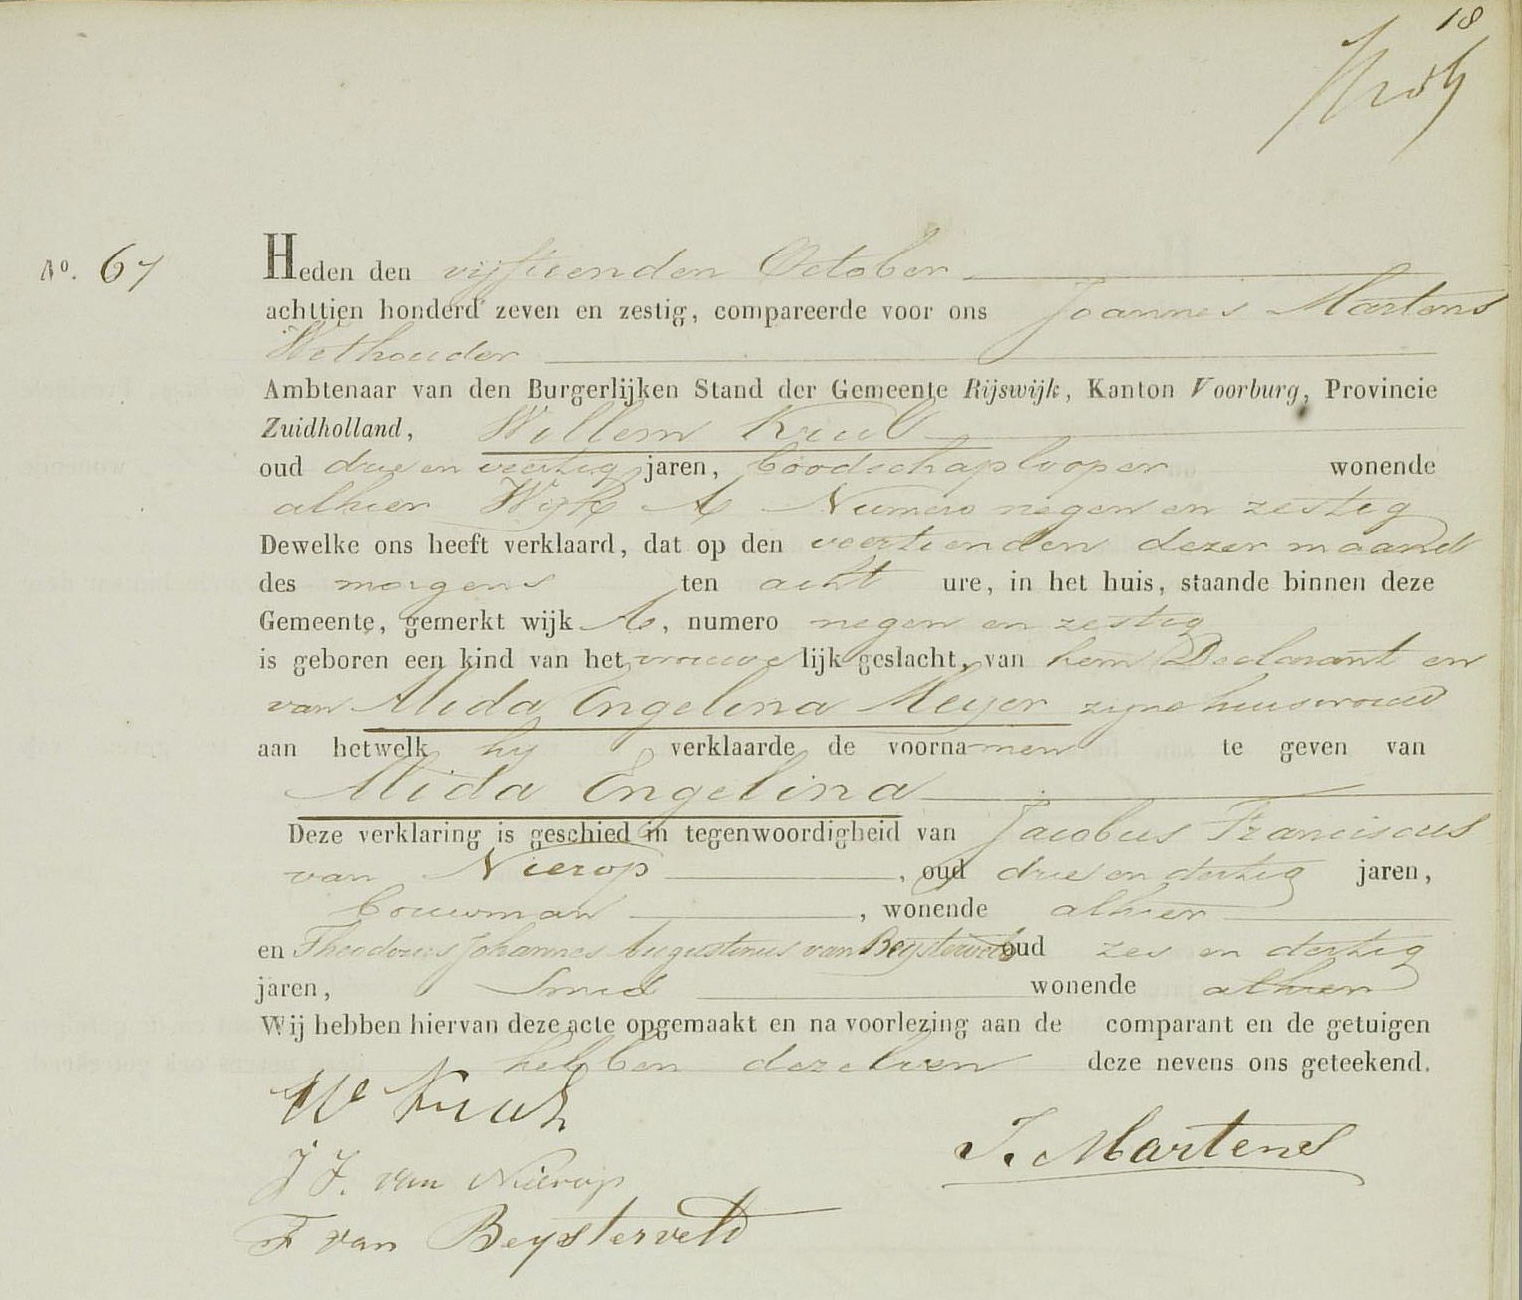 18
No. 67
Heden den vijftienden October
achttien honderd zeven en zestig, compareerde voor ons Joannes Martens
Wethouder
Ambtenaar van den Burgerlijken Stand der Gemeente Rijswijk, Kanton Voorburg, Provincie
Zuidholland, Willem
oud drie en veertig jaren, boodschaplooper wonende
alhier Wijk A Numero negen en zestig
Dewelke ons heeft verklaard, dat op den veertienden dezer maand
des morgens ten acht ure, in het huis, staande binnen deze
Gemeente, gemerkt wijk A, numero negen en zestig
is geboren een kind van het vrouwelijk geslacht, van hem Declarant en
van Alida Engelina Meijer zijne huisvrouw
aan hetwelk hij verklaarde de voornamen te geven van
Alida Engelina
Deze verklaring is geschied in tegenwoordigheid van Jacobus Franciscus
van Nierop, oud drie en dertig jaren,
Bouwman, wonende alhier
en Theodorus Johannes Augustinus van Beysterveld oud zes en dertig
jaren, Smid wonende alhier
Wij hebben hiervan deze acte opgemaakt en na voorlezing aan de comparant en de getuigen
hebben dezelven deze nevens ons geteekend.
W
J. Martens
J F. van Nierop
F van Beysterveld